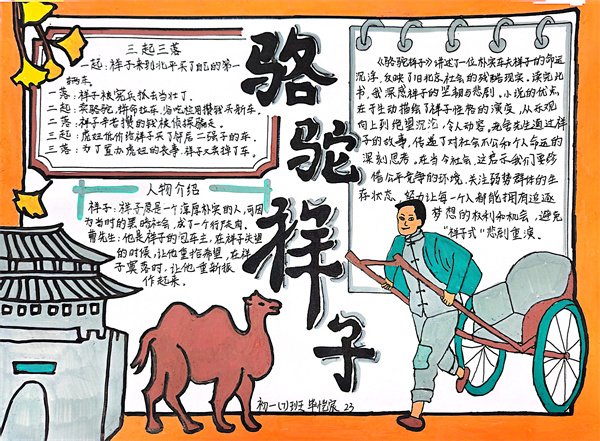 骆驼祥子
三起三落
一起：祥子来到北平买了自己的第一
辆车。
一落：祥子被宪兵抓去当壮丁。
二起：卖骆驼，拼命拉车，省吃俭用攒钱买新车。
二落：祥子辛苦攒的钱被侦探骗走。
三起：虎妞低价给祥子买了邻居二强子的车。
三落：为了置办虎妞的丧事，祥子又卖掉了车。
人物介绍
祥子：祥子原是一个浑厚朴实的人，可因
为当时的黑暗社会，成了一个行尸走肉。
曹先生：他是祥子的包车主，在祥子失望
的时候，让他重拾希望，在祥
子衰落时，让他重新振
作起来。
《骆驼祥子》讲述了一位朴实车夫祥子的命运
沉浮，反映了旧北京社会的残酷现实。读完此
书，我深感祥子的坚韧与悲剧。小说的优点，
在于生动描绘了祥子性格的演变，从乐观
向上到绝望沉沦，令人动容。老舍先生通过祥
子的故事，传递了对社会不公和个人命运的
深刻思考。在当今社会，这启示我们要珍
惜公平竞争的环境，关注弱势群体的生
存状态，努力让每一个人都能拥有追逐
梦想的权利和机会，避免
“祥子式”悲剧重演。
初一(1)班 毕恺宸 23